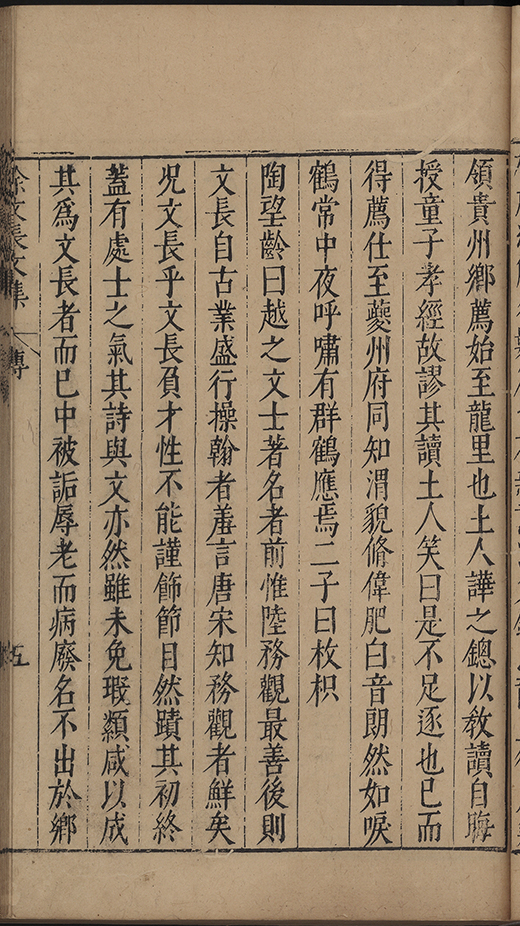 領貴州鄉薦始至龍里也土人譁之鏓以教讀自晦
授童子孝經故謬其讀土人笑曰是不足逐也已而
得薦仕至夔州府同知渭貌脩偉肥白音朗然如唳
鶴常中夜呼嘯有群鶴應焉二子曰枚枳
陶望齡曰越之文士著名者前惟陸務觀最善後則
文長自古業盛行操翰者羞言唐宋知務觀者鮮矣
况文長乎文長負才性不能謹飾節目然蹟其初終
蓋有處士之氣其詩與文亦然雖未免瑕纇咸以成
其爲文長者而已中被詬辱老而病廢名不出於鄉
徐文長文集 傳 五